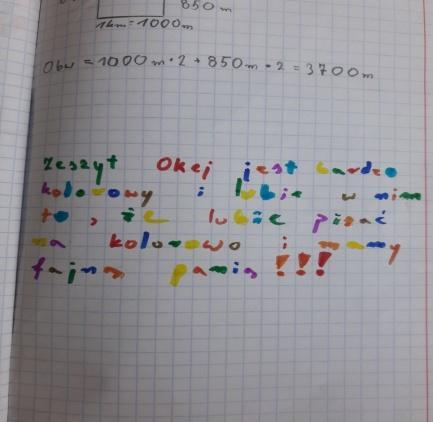 850 m
1km = 1000m
Obw = 1000 m · 2 + 850 m · 2 = 3700 m
Zeszyt Okej jest bardzo
kolorowy i lubie w nim
to, że lubię pisać
na kolorowo i mamy
fajną panią !!!